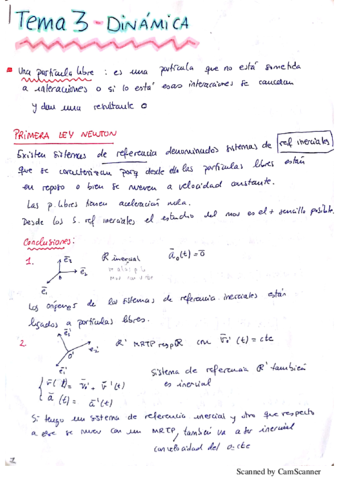 Tema 3 - DINÁMICA
Una partícula libre : es una partícula que no está sometida
a interacciones o si lo está esas interacciones se cancelan
y dan una resultante 0
PRIMERA LEY NEWTON
Existen sistemas de referencia denominados sistemas de ref inerciales
que se caracterizan porq desde ellos las partículas libres están
en reposo o bien se mueven a velocidad constante.
Las p. libres tienen aceleración nula.
Desde los S. ref inerciales el estudio del mov es el + sencillo posible.
Conclusiones:
1.
R inercial
a₀(t) = 0
Los orígenes de los sistemas de referencia inerciales están
ligados a partículas libres.
2.
R' MRTP resp R con (t) = cte
Sistema de referencia R' también
es inercial
a (t) = a'(t)
Si tengo un sistema de referencia inercial y otro que respecto
a ese se mueve con un MRTP, también va a ser inercial
con velocidad del 0' cte
1
Scanned by CamScanner